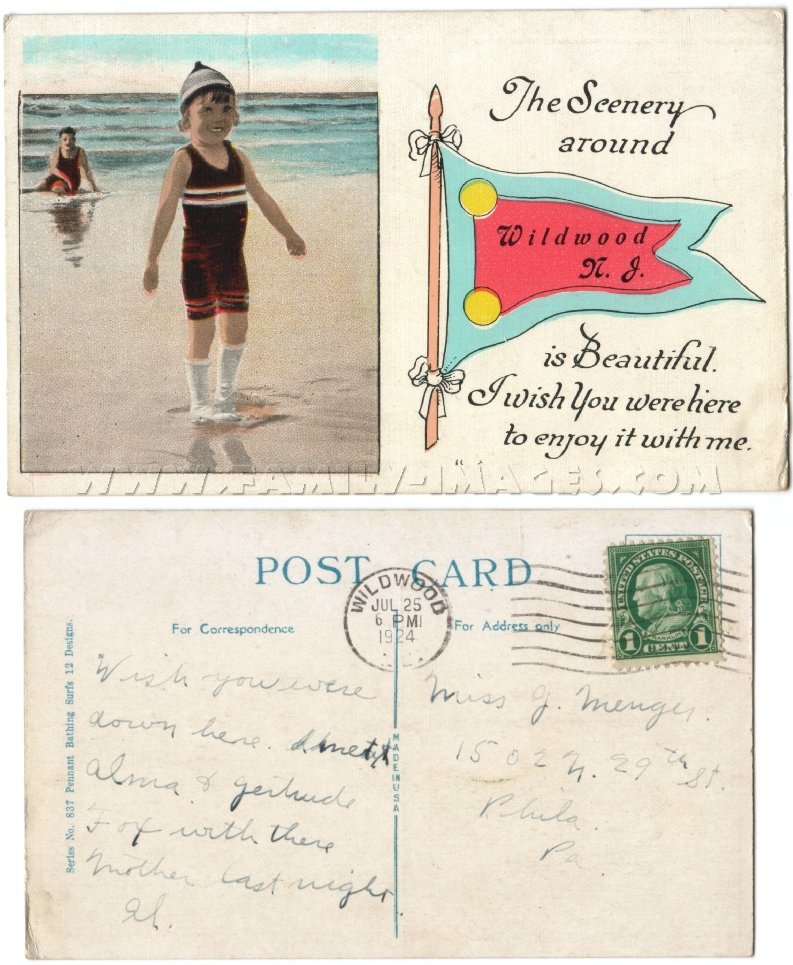 The Scenery
around
Wildwood
N. J.
is Beautiful.
I wish You were here
to enjoy it with me.
WWW.FAMILY-IMAGES.COM
POST CARD
WILDWOOD
JUL 25
6 PM
1924
UNITED STATES POSTAGE
FRANKLIN
1 CENT 1
For Correspondence
For Address only
Series No. 837 Pennant Bathing Surfs 12 Designs.
MADE IN USA
Wish you were
down here. I met
Alma & Gertrude
Fox with there
Mother last night.
Miss G. Menger.
1502 N. 29th St.
Phila.
Pa